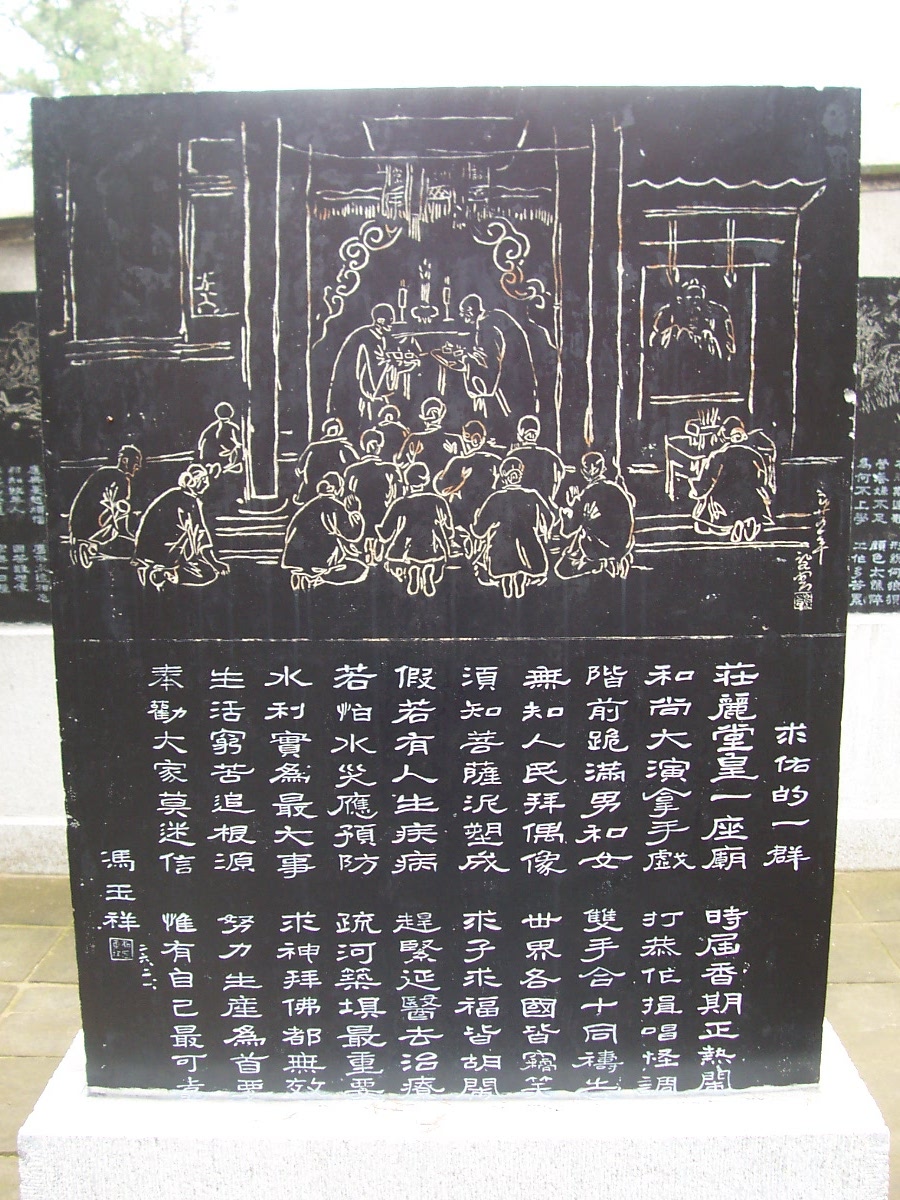 求佑的一群
莊麗堂皇一座廟 時屆香期正熱鬧
和尚大演拿手戲 打恭作揖唱怪調
階前跪滿男和女 雙手合十同禱告
無知人民拜偶像 世界各國皆竊笑
須知菩薩泥塑成 求子求福皆胡鬧
假若有人生疾病 趕緊延醫去治療
若怕水災應預防 疏河築壩最重要
水利實為最大事 求神拜佛都無效
生活窮苦追根源 努力生產為首要
奉勸大家莫迷信 惟有自己最可靠
馮玉祥